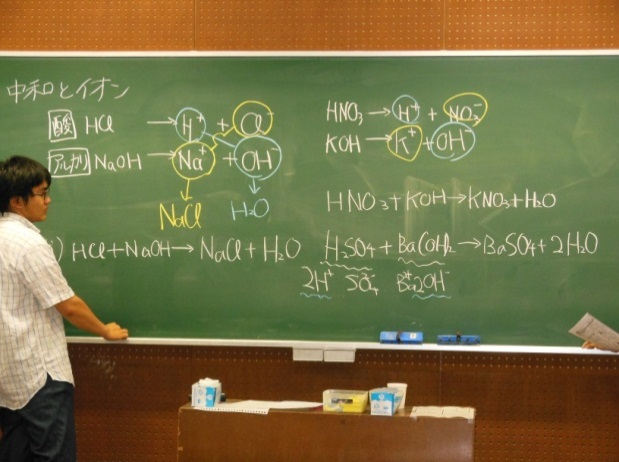 中和とイオン
酸 HCl → H⁺ + Cl⁻
アルカリ NaOH → Na⁺ + OH⁻
NaCl H₂O
) HCl+NaOH→NaCl+H₂O
HNO₃ → H⁺ + NO₃⁻
KOH → K⁺ + OH⁻
HNO₃+KOH→KNO₃+H₂O
H₂SO₄+Ba(OH)₂→BaSO₄+2H₂O
2H⁺ SO₄²⁻ Ba²⁺ 2OH⁻